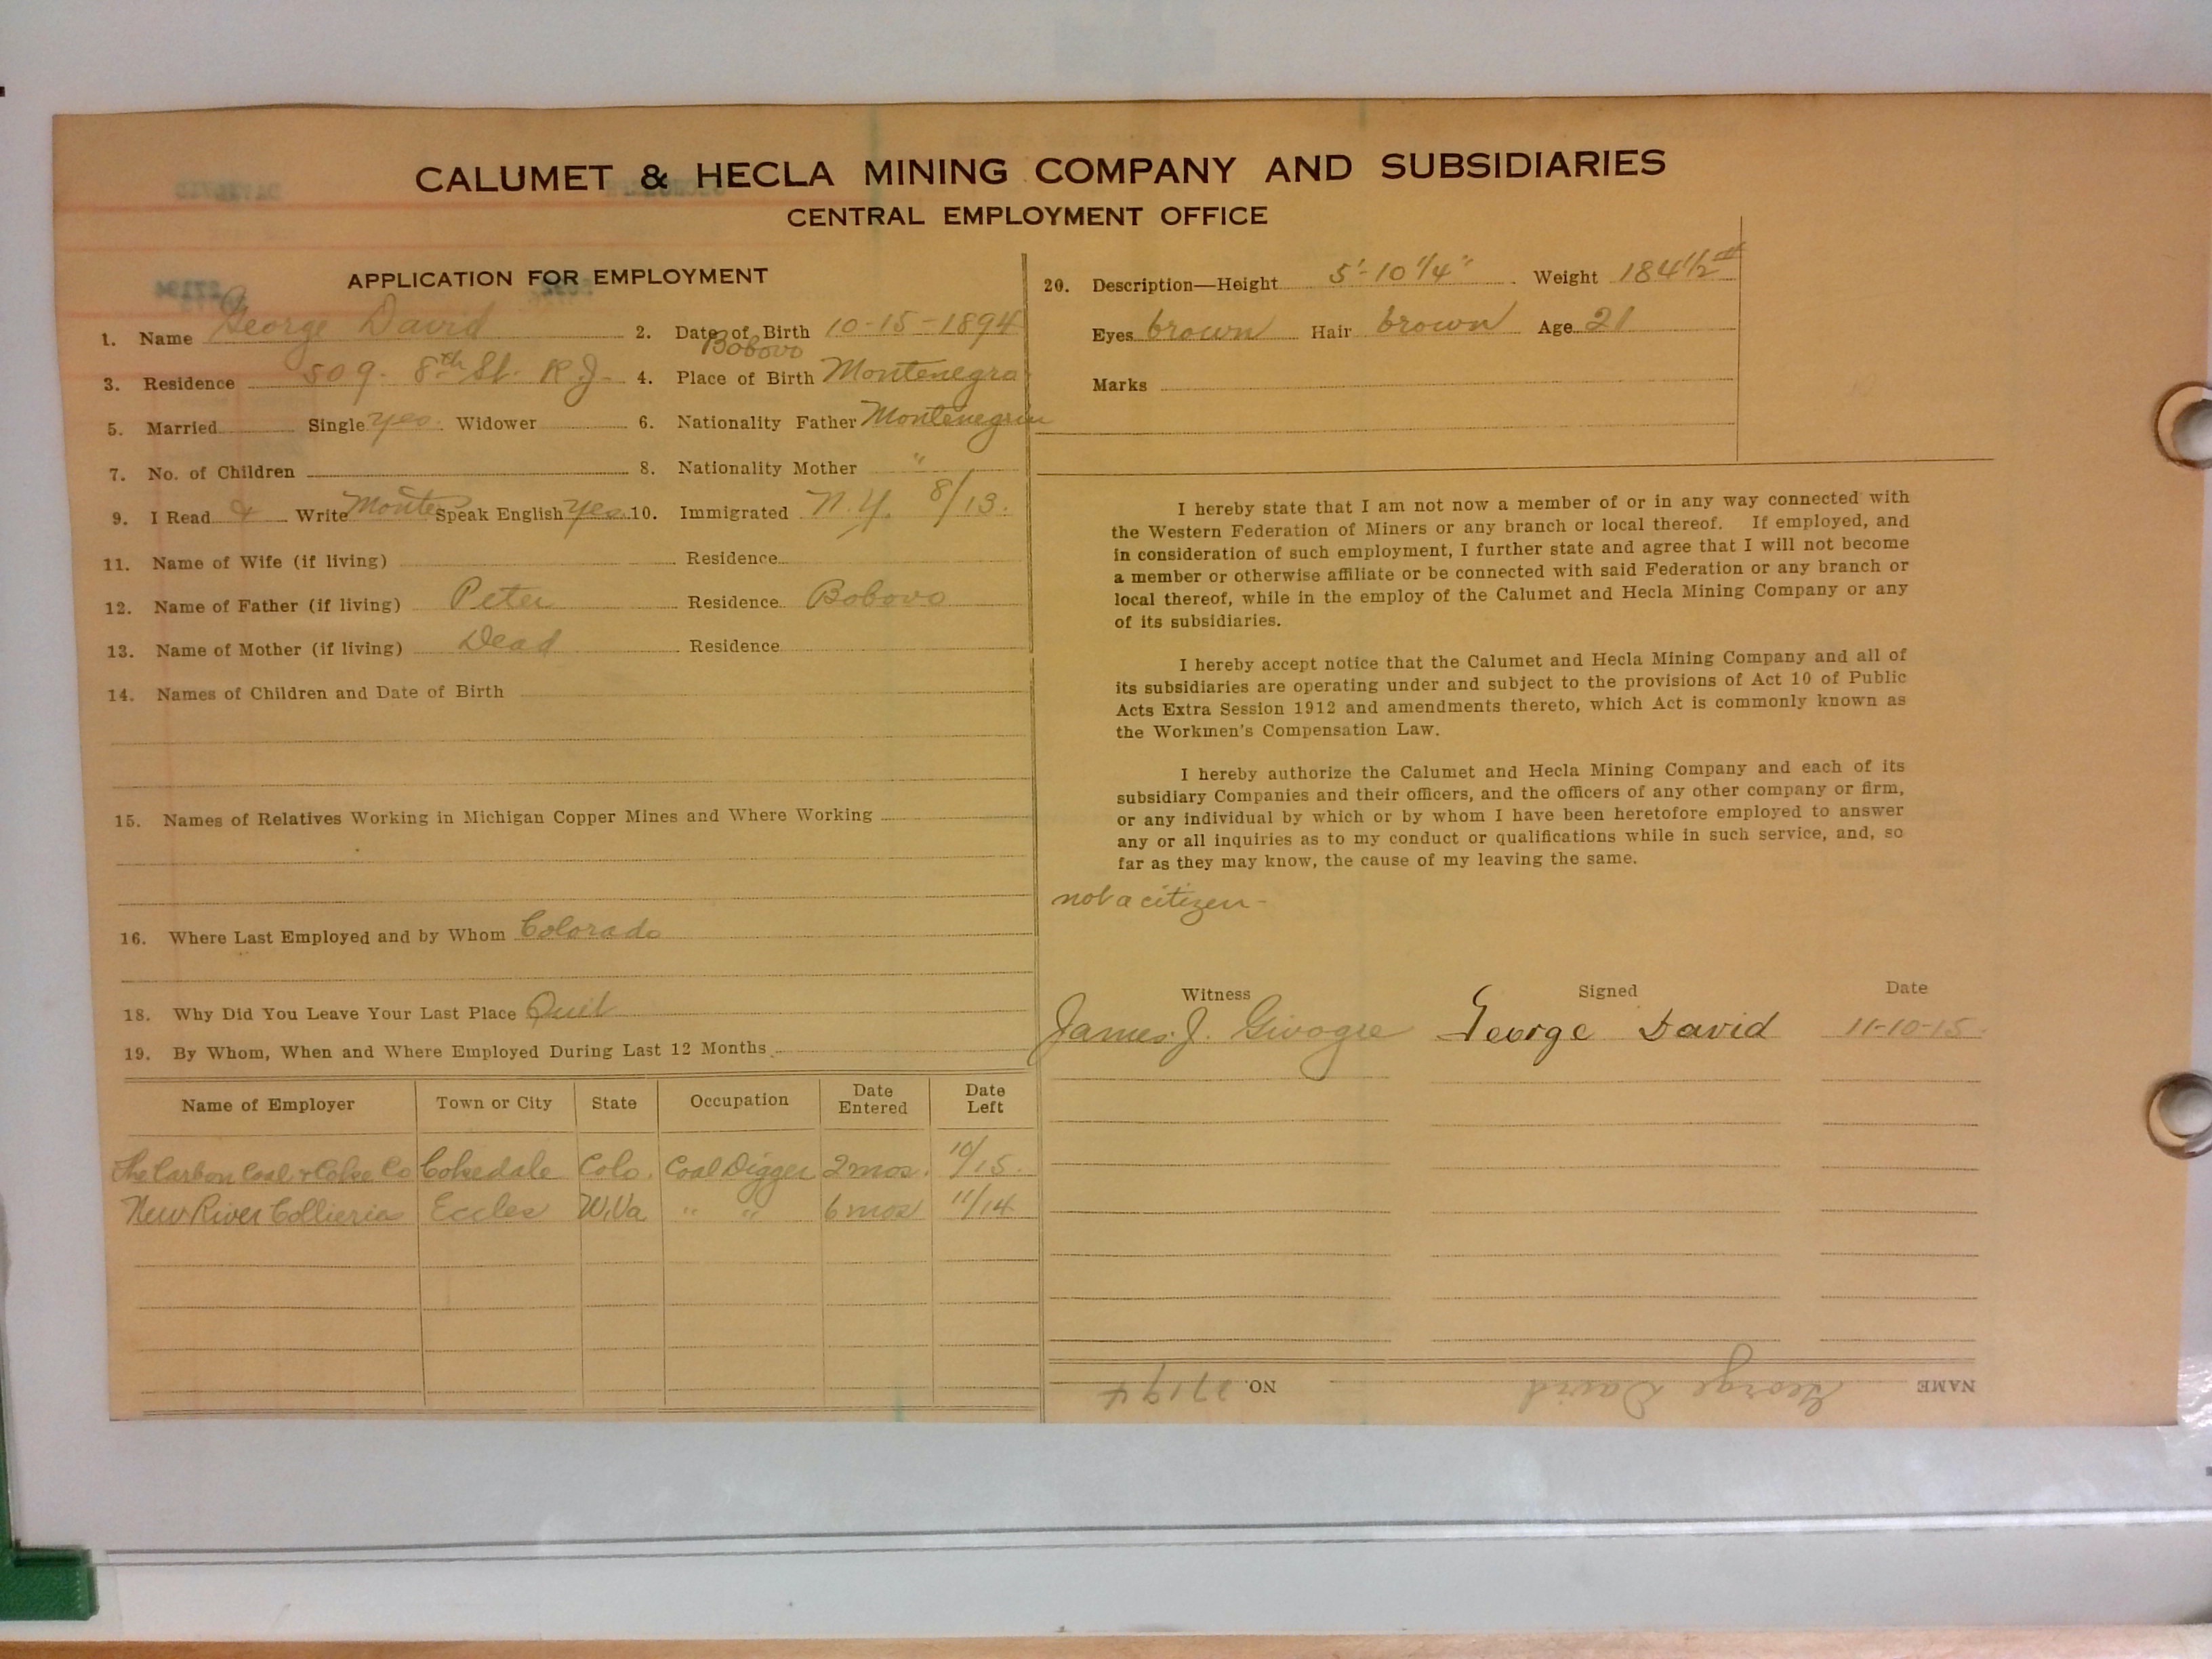 CALUMET & HECLA MINING COMPANY AND SUBSIDIARIES
CENTRAL EMPLOYMENT OFFICE
APPLICATION FOR EMPLOYMENT
1. Name George David 2. Date of Birth 10-15-1894
3. Residence 509- 8th St. R.J. 4. Place of Birth Bobovo Montenegro
5. Married Single yes. Widower 6. Nationality Father Montenegrin
7. No. of Children 8. Nationality Mother "
9. I Read & Write Monte Speak English yes 10. Immigrated N.Y. 8/13.
11. Name of Wife (if living) Residence
12. Name of Father (if living) Peter Residence Bobovo
13. Name of Mother (if living) Dead Residence
14. Names of Children and Date of Birth
15. Names of Relatives Working in Michigan Copper Mines and Where Working
16. Where Last Employed and by Whom Colorado
18. Why Did You Leave Your Last Place Quit
19. By Whom, When and Where Employed During Last 12 Months
Name of Employer Town or City State Occupation Date Entered Date Left
The Carbon Coal & Coke Co Cokedale Colo. Coal Digger 2 mos. 10/15.
New River Collieries Eccles W.Va " " 6 mos 11/14
20. Description—Height 5'-10 1/4" Weight 184 1/2 #
Eyes brown Hair brown Age 21
Marks
I hereby state that I am not now a member of or in any way connected with
the Western Federation of Miners or any branch or local thereof. If employed, and
in consideration of such employment, I further state and agree that I will not become
a member or otherwise affiliate or be connected with said Federation or any branch or
local thereof, while in the employ of the Calumet and Hecla Mining Company or any
of its subsidiaries.
I hereby accept notice that the Calumet and Hecla Mining Company and all of
its subsidiaries are operating under and subject to the provisions of Act 10 of Public
Acts Extra Session 1912 and amendments thereto, which Act is commonly known as
the Workmen's Compensation Law.
I hereby authorize the Calumet and Hecla Mining Company and each of its
subsidiary Companies and their officers, and the officers of any other company or firm,
or any individual by which or by whom I have been heretofore employed to answer
any or all inquiries as to my conduct or qualifications while in such service, and, so
far as they may know, the cause of my leaving the same.
not a citizen-
Witness Signed Date
James J. George David 11-10-15.
NAME George David NO. 27194